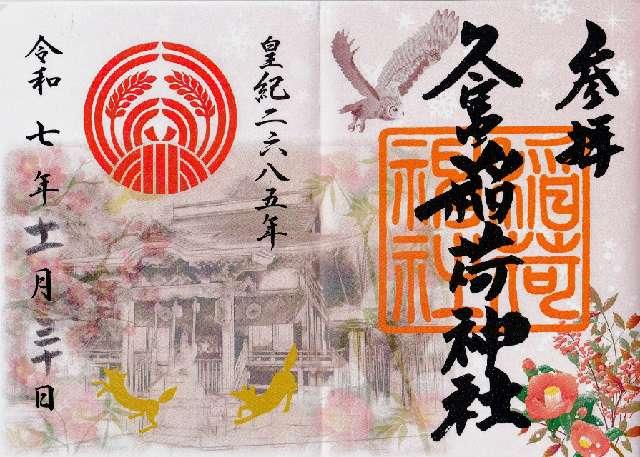 參拜
久富稲荷神社
稲荷
神社
皇紀二六八五年
令和七年十一月三十日